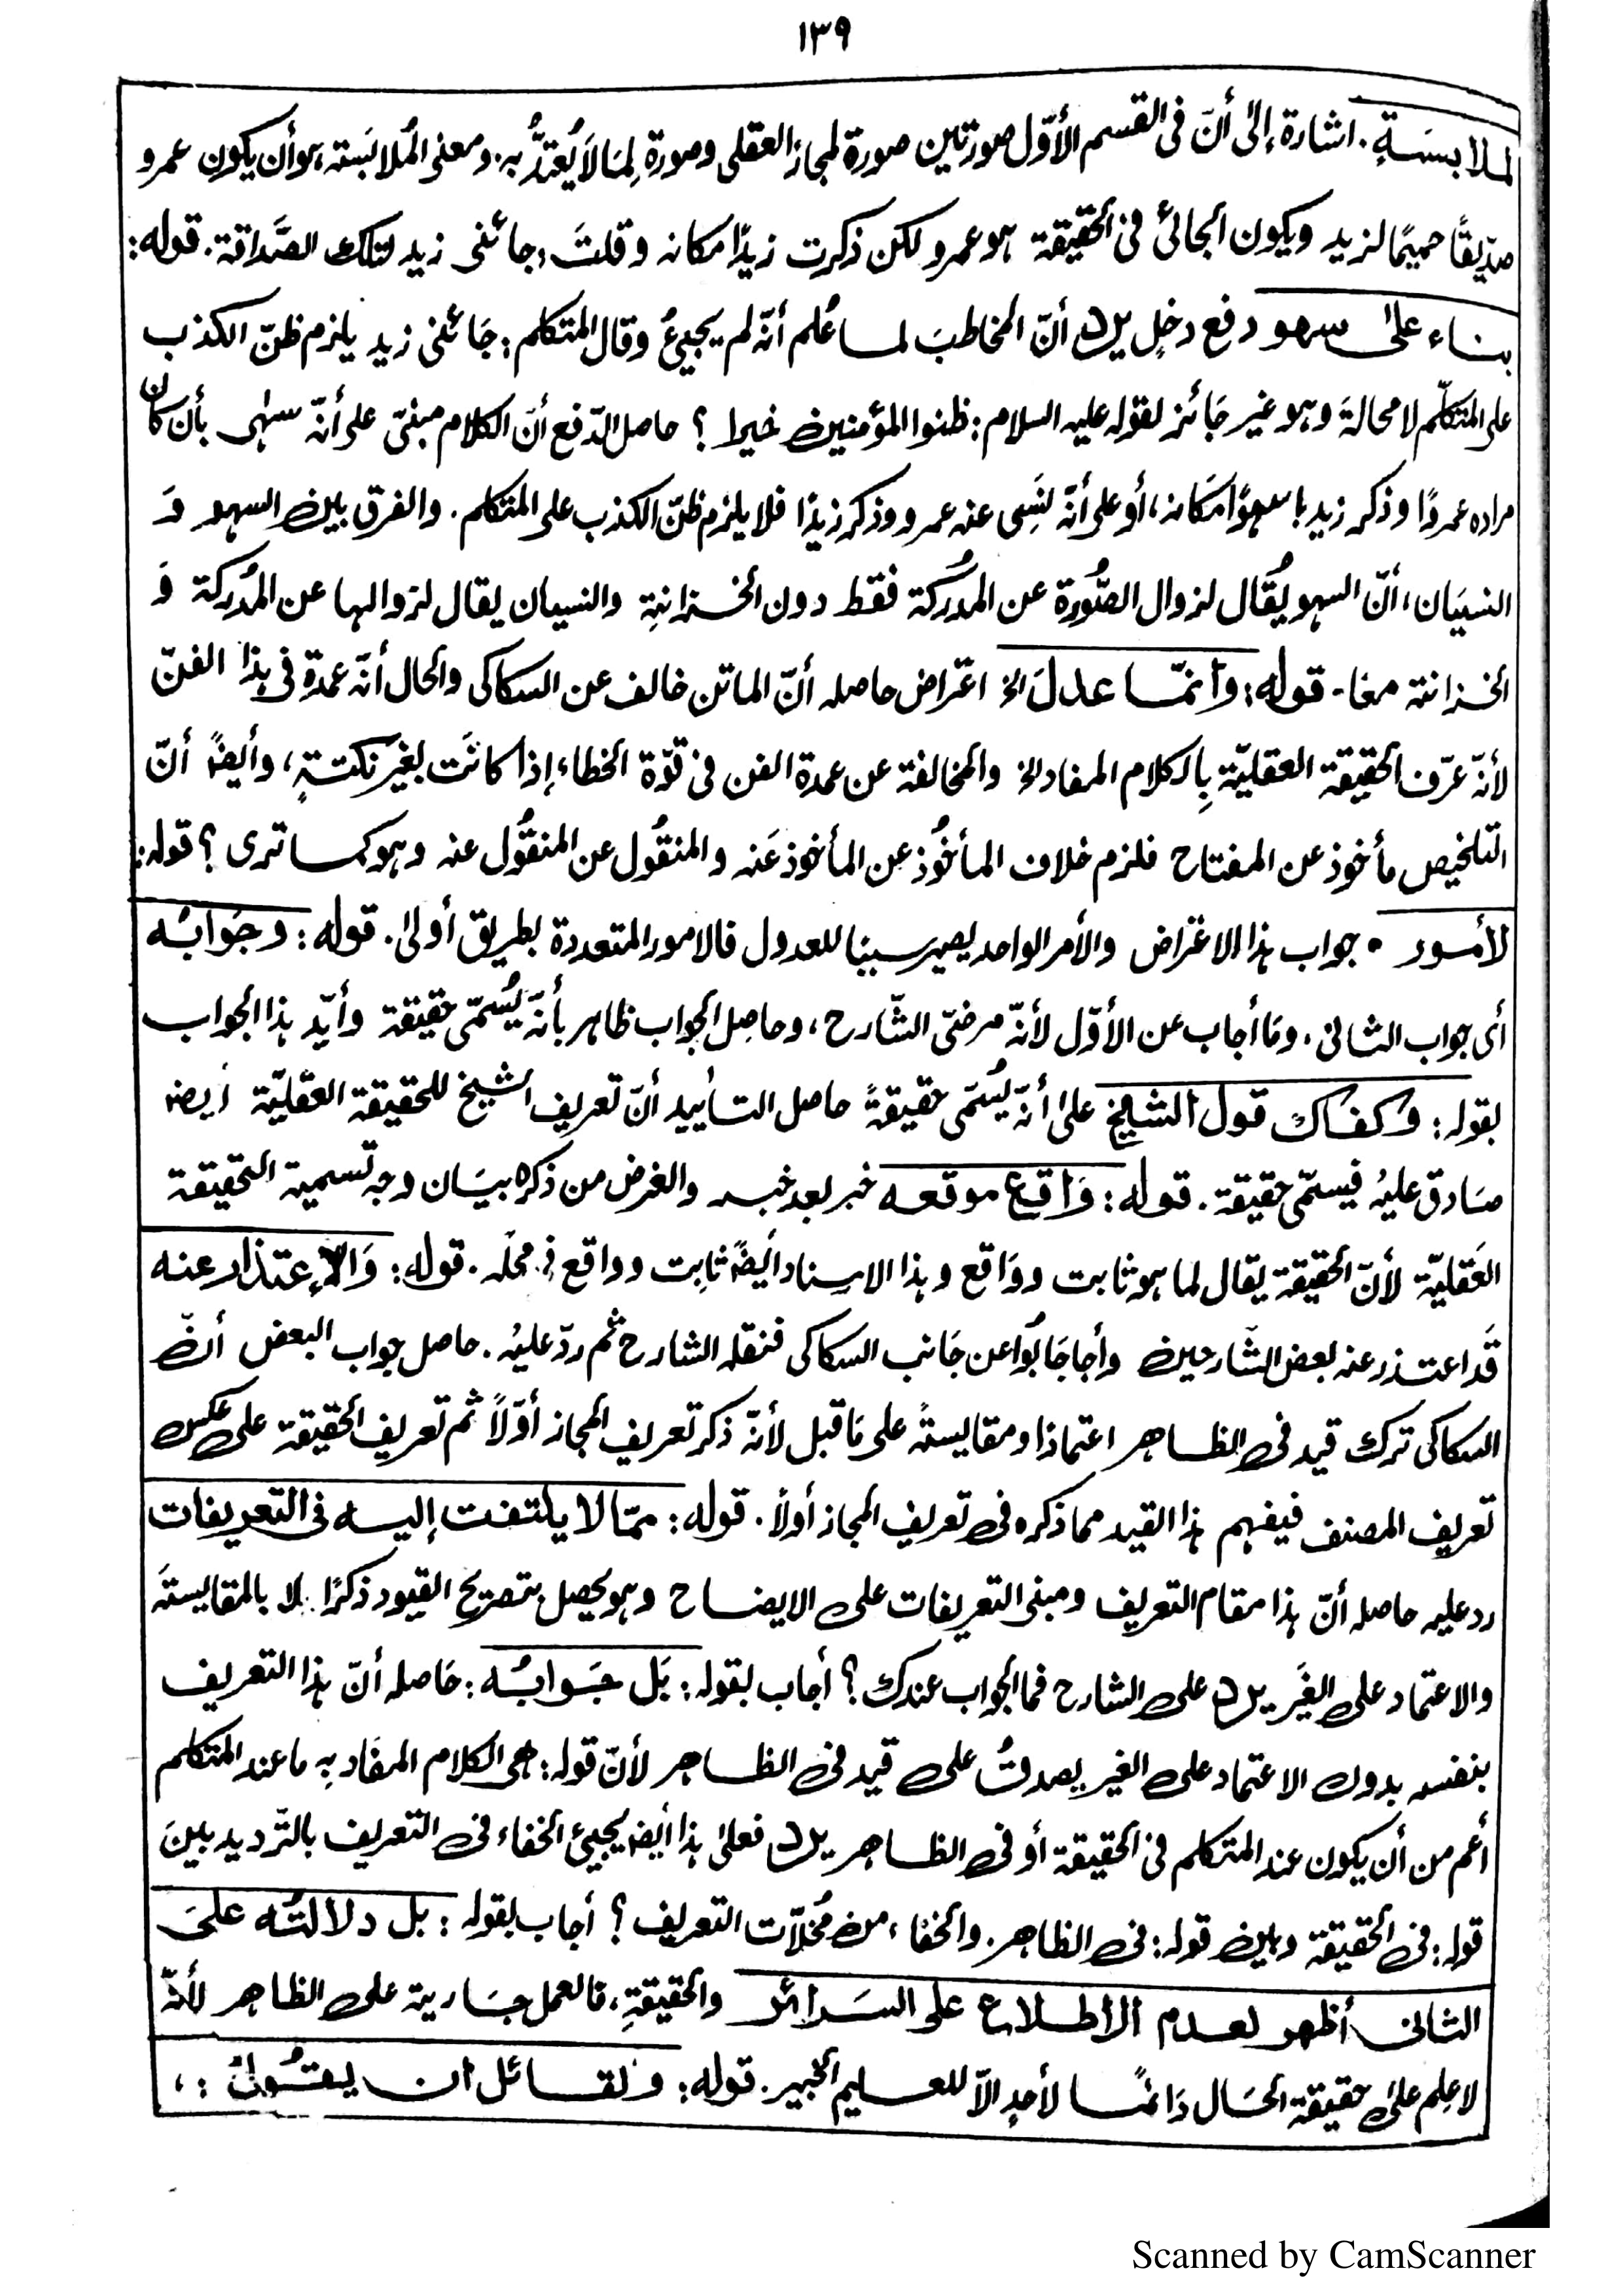 ١٣٩
لملابسَةٍ. اشارة إلىٰ أنّ فى القسم الأوّل صورتين صورة لمجاز العقلى وصورة لِمَا لَا يُعتدُّ به. ومعنى المُلابَسته، هو أن يكون عمرو
صدّيقًا حميمًا لزيد ويكون الجائئ فى الحقيقة هو عمرو لكن ذكرت زيدًا مكانه وقلتَ: جائنى زيد لتلك الصَّداقة. قوله:
بناء علىٰ سهو دفع دخلٍ يرد أنّ المخاطبَ لما عُلم أنّه لم يجيئُ وقال المتكلم: جَائنى زيد يلزم ظنّ الكذب
على المتكلّم لا محالةَ وهو غير جَائز لقوله عليه السلام: ظنوا المؤمنين خيرا؟ حاصل الدّفع أنّ الكلام مبنىّ على أنّه سهٰى بأن كان
مراده عمروًا وذكر زيد با سهوًا مَكَانه، أو على أنّه نَسِى عنه عمرو وذكر زيدًا فلا يلزم ظنّ الكذب على المتكلم. والفرق بين السهو وَ
النسيَان، أنّ السهو يُقال لزوال الصُّورة عن المدُركة فقط دون الخزانةِ والنسيان يقال لزوالها عن المُدركة وَ
الخزانة معًا. قوله: وَانّما عدلَ الخ اعتراض حاصله أنّ الماتن خالف عن السكاكى والحال أنّه عمدة فى هذا الفنّ
لأنّه عرّف الحقيقة العقليّة بِالكلام المفاد الخ والمخالفة عن عمدة الفن فى قوّة الخطاء إذا كانَت بغير نكتةٍ، وأيضًا أنّ
التلخيص مأخوذ عن المفتاح فلزم خلاف المأخُوذ عن المأخوذ عَنه والمنقُول عن المنقُول عنه وهو كما ترى؟ قوله:
لأمُور • جواب هذا الاعتراض والأمر الواحد يصير سببًا للعدول فالامور المتعددة بطريق أولىٰ. قوله: وجَوابُه
أى جواب الثانى. ومَا أجاب عن الأوّل لأنّه مرضىّ الشّارح، وحاصِل الجواب ظاهر بأنّه يُسَمّٰى حقيقة وأيّد هذا الجواب
بقوله: وكفاك قول الشيخ علىٰ أنّه يُسَمّٰى حقيقةً حاصل التأييد أنّ تعريف الشيخ للحقيقة العقليّة أيضا
صَادق عليهُ فيسمّٰى حقيقة. قوله: وَاقع موقعه خبر بعد خبر والغرض من ذكره بيَان وجه تسمية الحقيقة
العَقليّة لأنّ الحقيقة يقال لما هو ثابت ووَاقع وهذا الاسناد أيضًا ثابِت وواقع فى محلّه. قوله: وَالإعتذار عنه
قَد اعتذر عنه بعض الشّارحين وأجاجَابُوا عن جَانب السكاكى فنقله الشارح ثم ردّ عليهُ. حاصل جواب البعض أنّ
السكاكى ترك قيد فى الظاهر اعتمادا ومقايسةً على مَا قبل لأنّه ذكر تعريف المجاز أوّلاً ثم تعريف الحقيقة على عكس
تعريف المصنف فيفهم هذا القيد مما ذكره فى تعريف المجاز أولاً. قوله: ممّا لا يلتفت إليه فى التعريفات
رد عليه حاصله أنّ هذا مقام التعريف ومبنى التعريفات على الايضاح وهو يحصل بتصريح القيود ذكرًا. لا بالمقايسةَ
والاعتماد على الغَير يرد على الشارح فما الجواب عندك؟ أجاب بقوله: بَل جَوابُه: حَاصله أنّ هذا التعريف
بنفسه بدون الاعتماد على الغير يصدقُ على قيد فى الظاهر لأنّ قوله: هى الكلام المفَاد بِه ما عند المتكلم
أعم من أن يكون عند المتكلم فى الحقيقة أو فى الظاهر يرد فعلىٰ هذا أيضا يجيئ الخفاء فى التعريف بالتّرديد بينَ
قوله: فى الحقيقة وبين قوله: فى الظاهر. والخفَاء من مُخلّات التعريف؟ أجاب بقوله: بل دلالتُه علىَ
الثانى أظهر لعدم الاطلاع على السَرائر والحقيقةِ، فالعمل جَارية على الظاهر لأنّه
لا عِلم علىٰ حقيقة الحَال دَائمًا لأحدٍ الاّ للعليم الخبير. قوله: ولقائل ان يقُولُ:،
Scanned by CamScanner